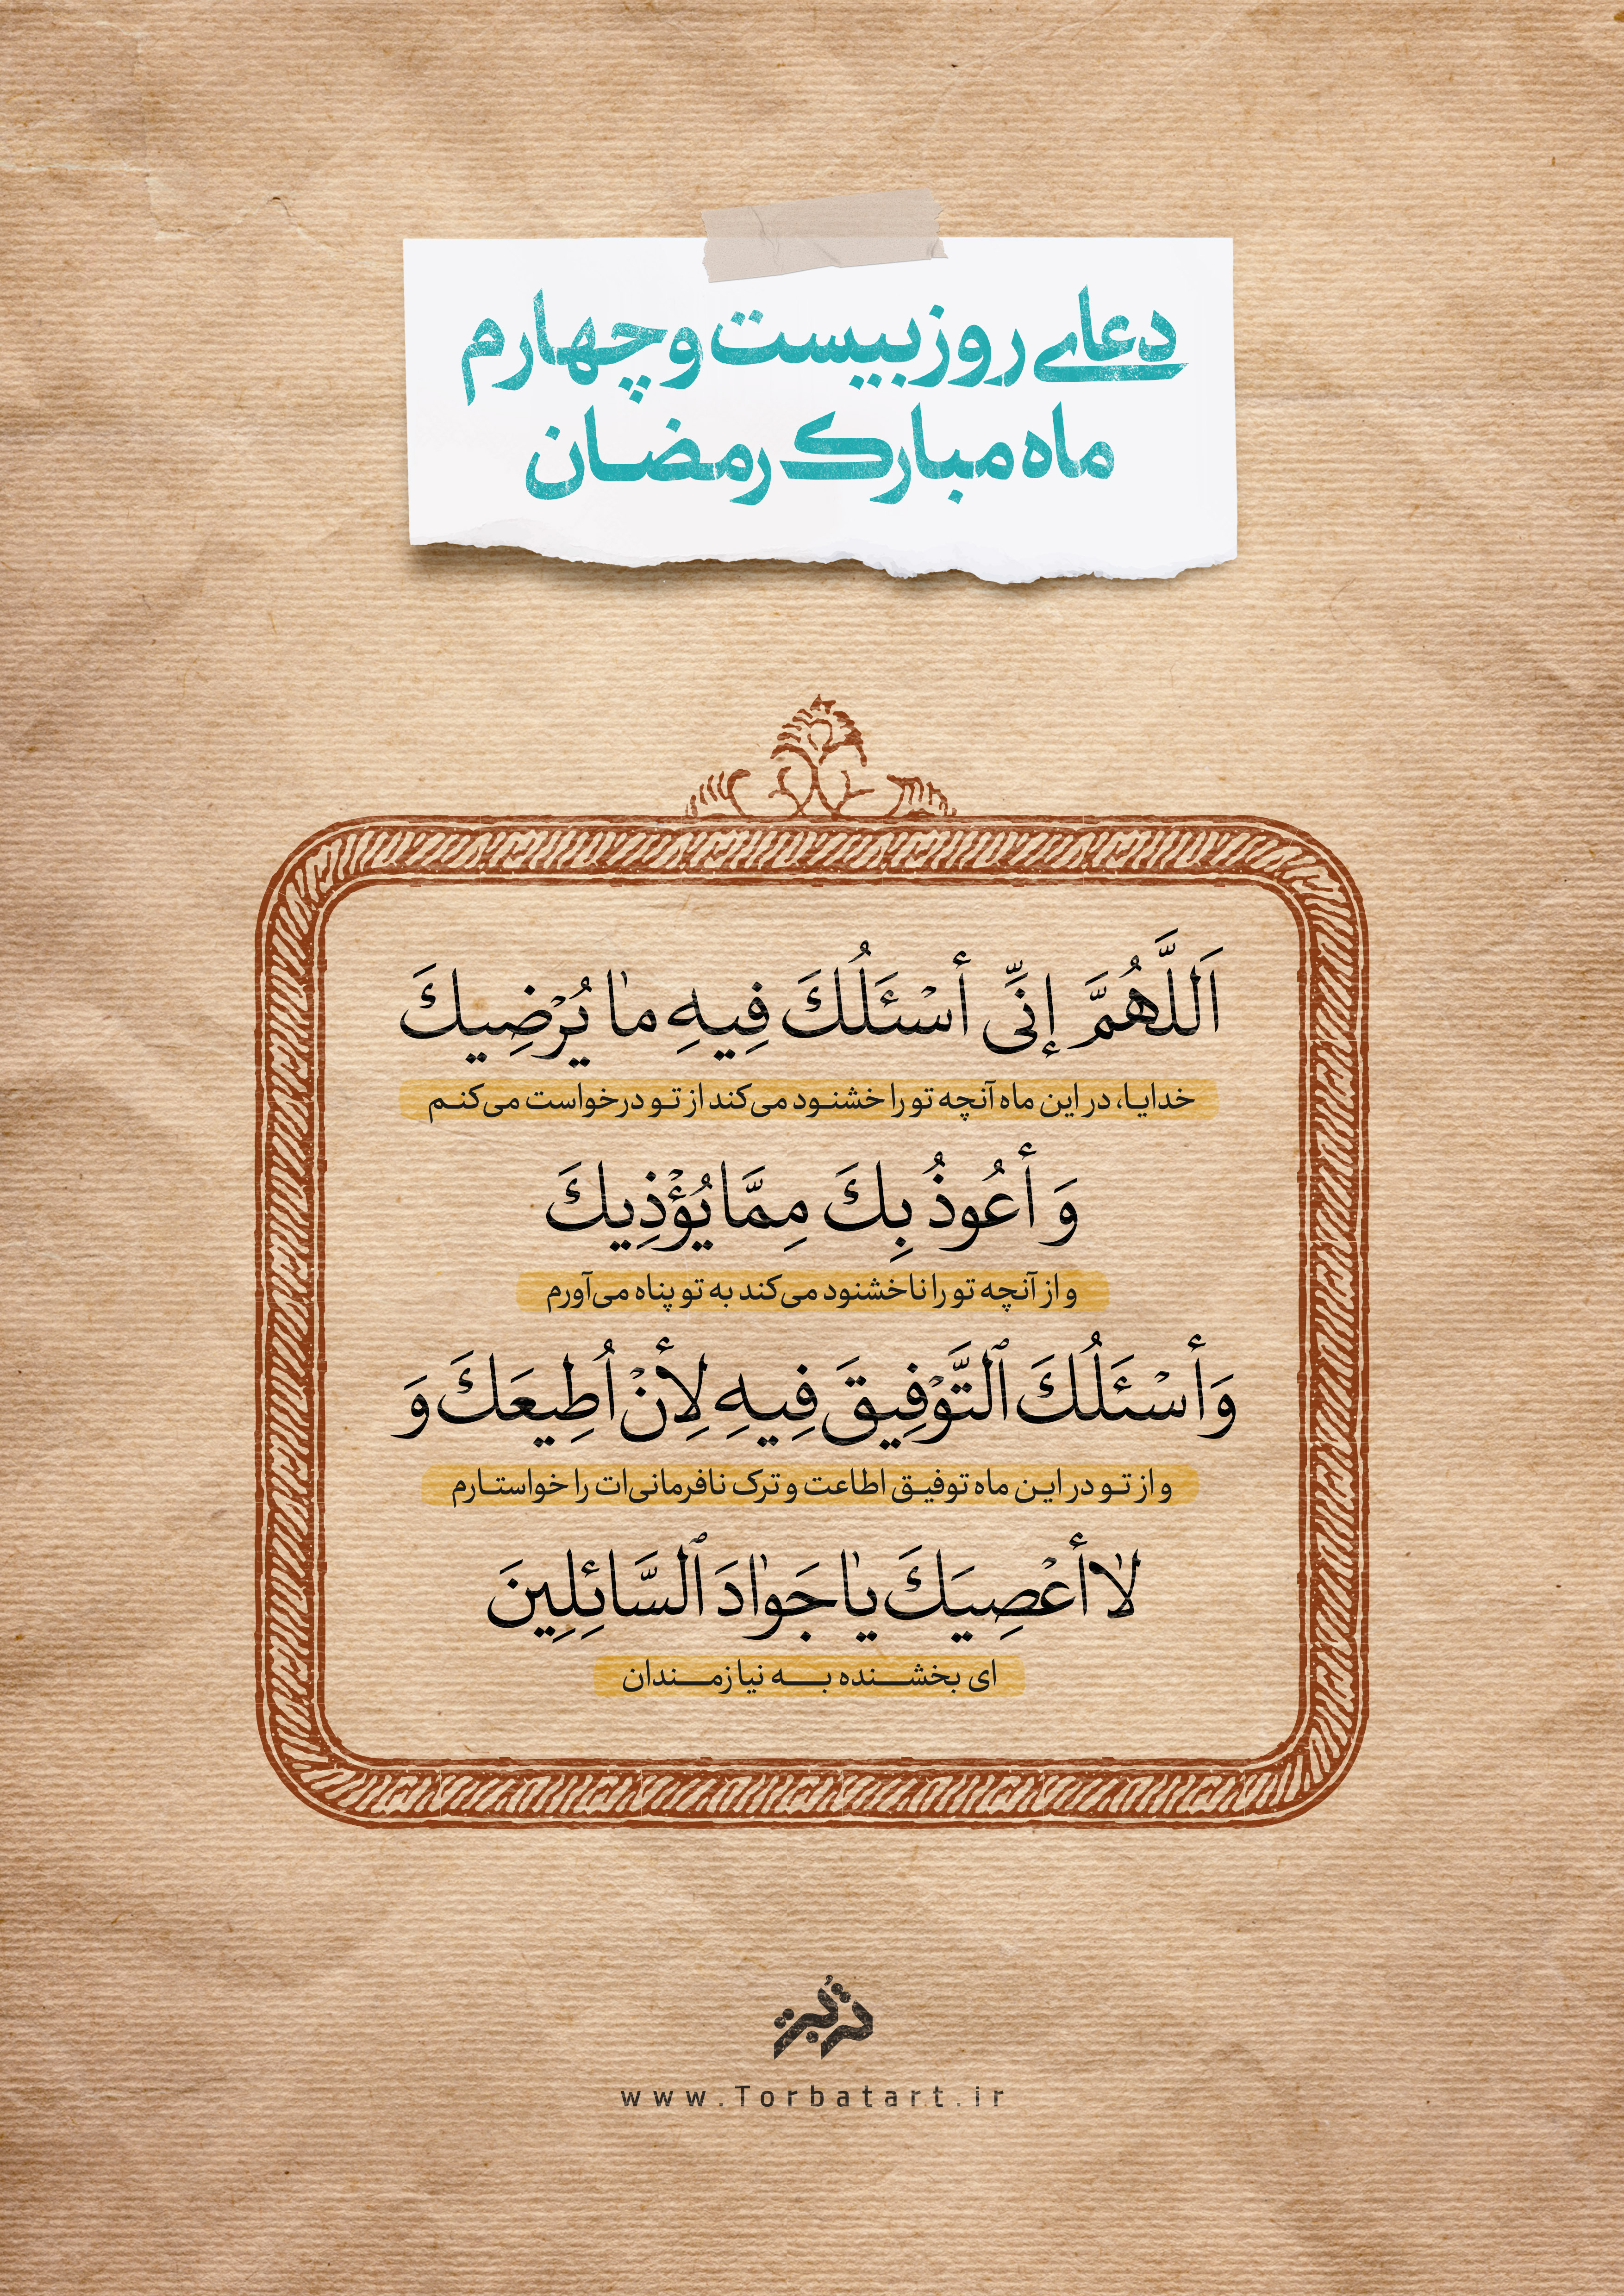 دعای روز بیست و چهارم
ماه مبارک رمضان
اَللَّهُمَّ إنِّی أسْئَلُكَ فِیهِ مٰا یُرْضِیكَ
خدایا، در این ماه آنچه تو را خشنود می‌کند از تو درخواست می‌کنم
وَ أعُوذُ بِكَ مِمَّا یُؤْذِیكَ
و از آنچه تو را ناخشنود می‌کند به تو پناه می‌آورم
وَ أسْئَلُكَ ٱلتَّوْفِیقَ فِیهِ لِأنْ اُطِیعَكَ وَ
و از تو در این ماه توفیق اطاعت و ترک نافرمانی‌ات را خواستارم
لاٰ أعْصِیَكَ یٰا جَوٰادَ ٱلسَّائِلِینَ
ای بخشنده به نیازمندان
تربت
www.Torbatart.ir